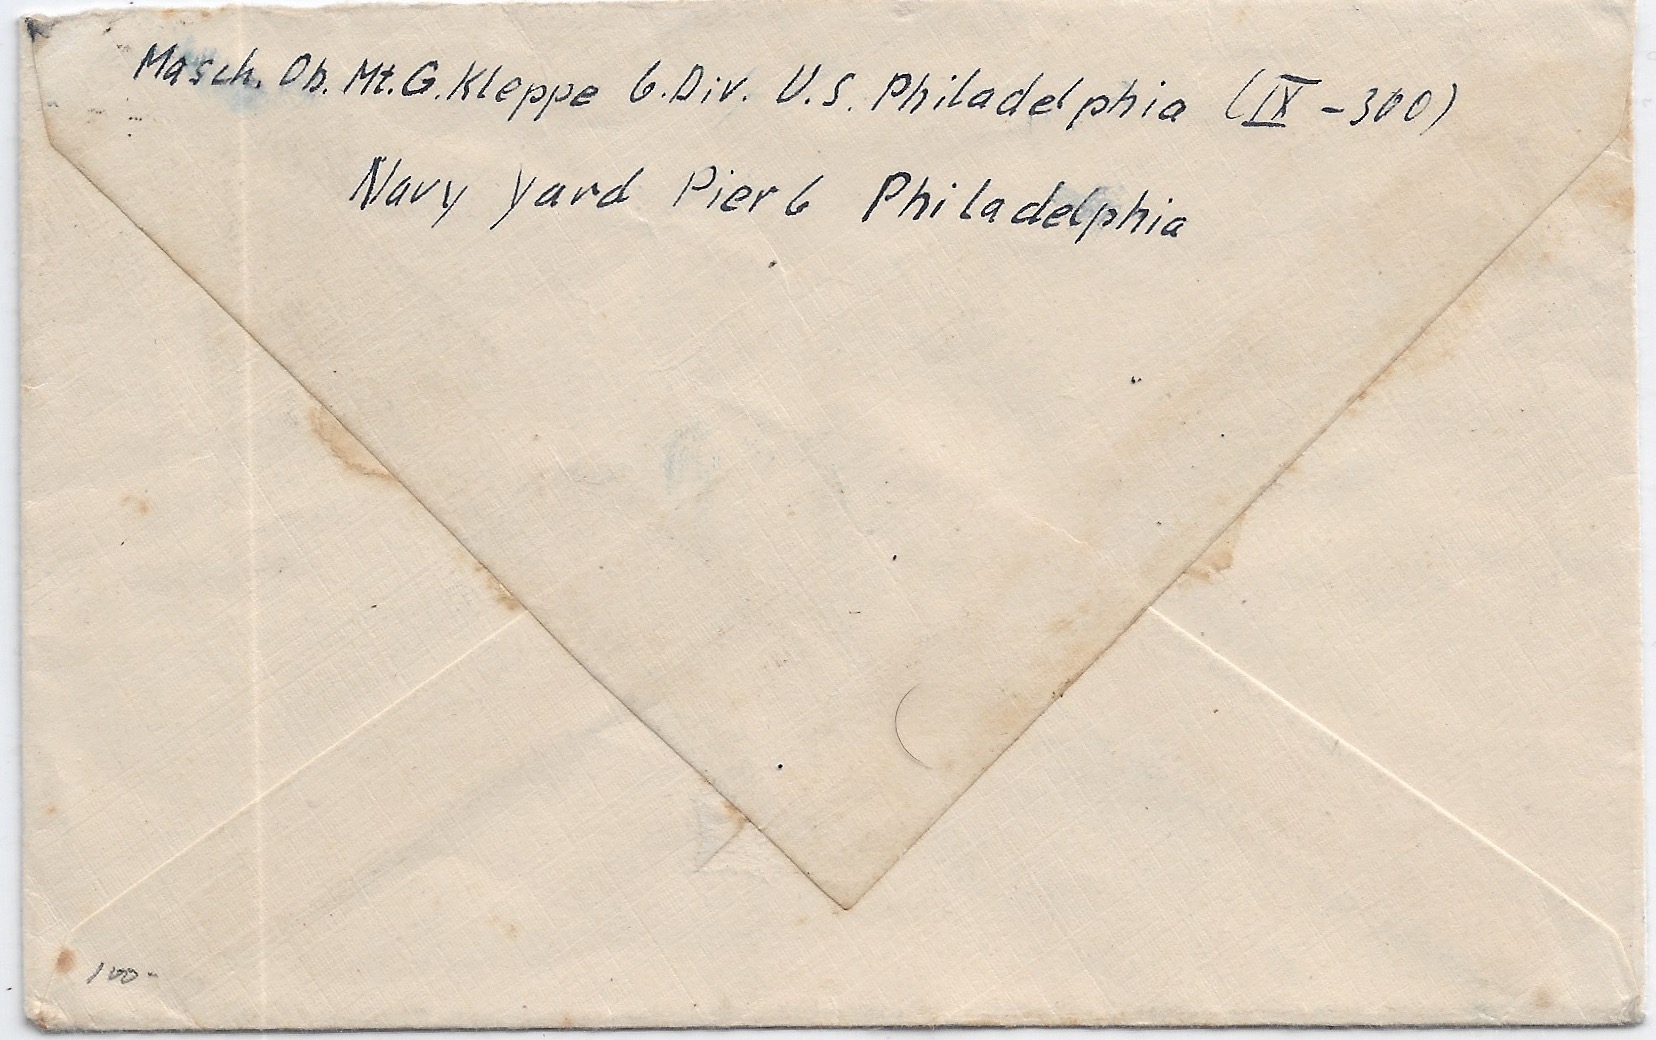 Masch. Ob. Mt. G. Kleppe 6. Div. U. S. Philadelphia (IX - 300)
Navy Yard Pier 6 Philadelphia
100-